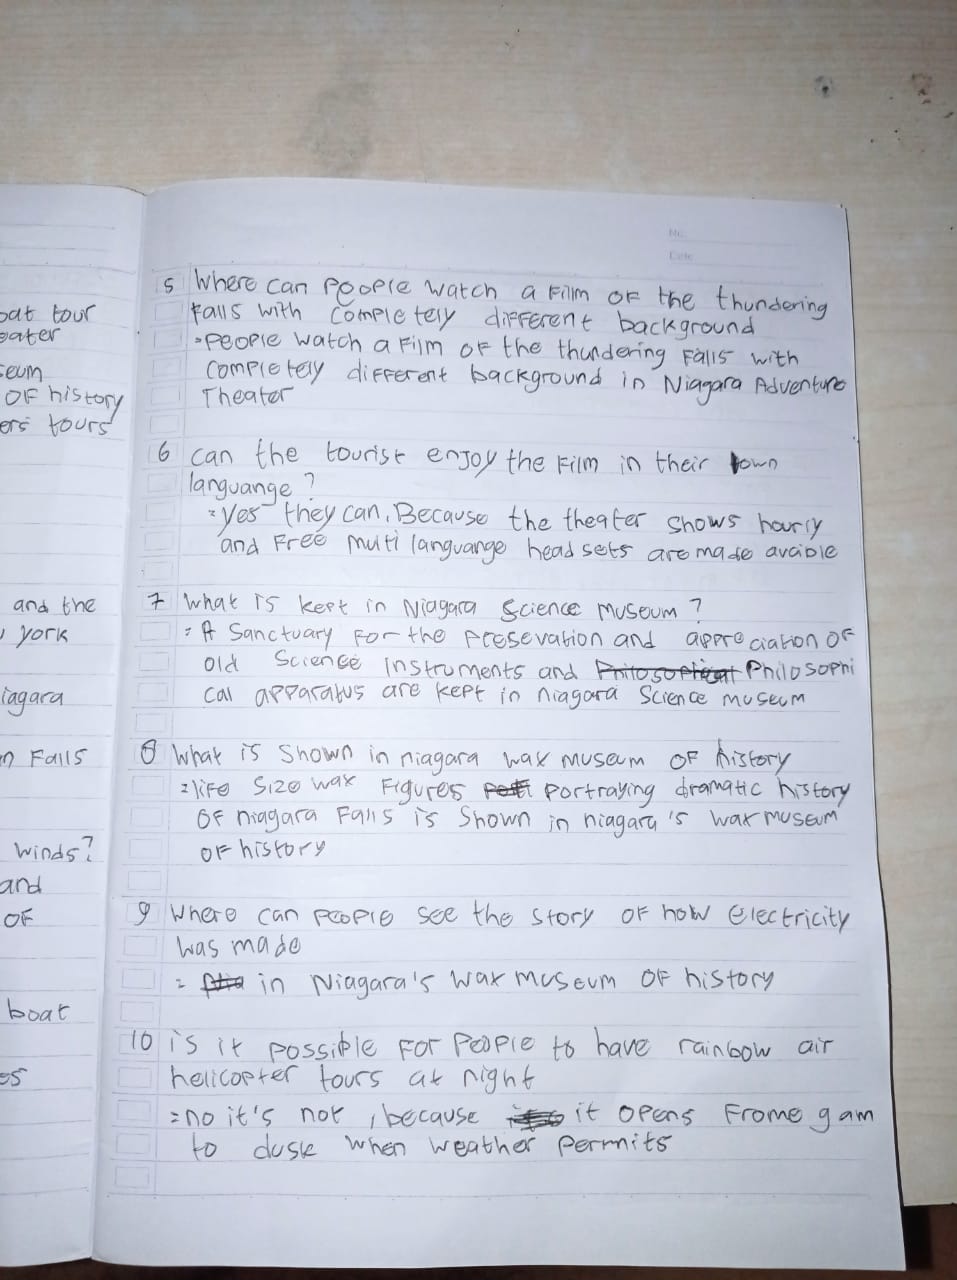 No.
Date
oat tour
eater
seum
OF history
ers tours
and the
york
iagara
n Falls
winds?
and
OF
boat
es
5 Where can people watch a Film OF the thundering
Falls with Completely different background
=People watch a Film OF the thundering Falls with
completely different background in Niagara Adventure
Theater
6 can the tourist enjoy the Film in their own
languange?
=Yes they can, Because the theater shows hourly
and Free multi languange head sets are made avaible
7 What is kept in Niagara Science Museum?
= A Sanctuary For the Presevation and appreciation OF
old Science Instruments and Philosophical Philosophi
cal apparatus are kept in niagara Science museum
8 What is Shown in niagara wax museum OF history
=life Size wax Figures portraying dramatic history
OF niagara Falls is Shown in niagara's wax museum
OF history
9 Where can people see the story OF how electricity
was made
= in Niagara's wax museum OF history
10 is it possible For People to have rainbow air
helicopter tours at night
=no it's not, because it opens Frome 9 am
to dusk when weather permits